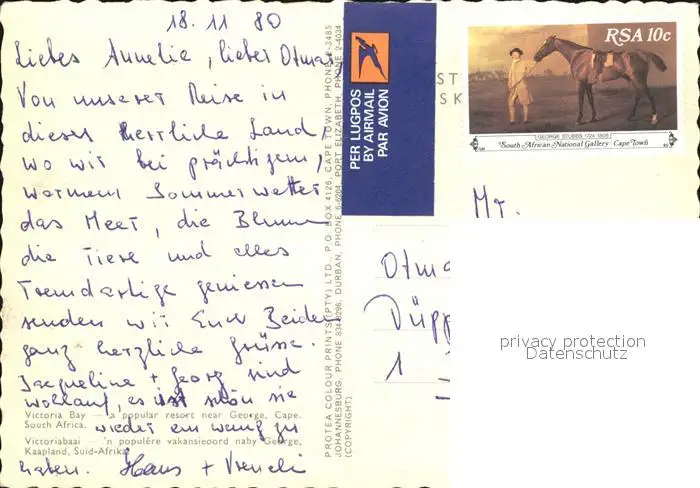 18.11 80
Liebes Annelie, lieber Otmar,
Von unserer Reise in
dieses herrliche Land,
wo wir bei prächtigem,
warmem Sommerwetter
das Meer, die Blumen
die Tiere und alles
Fremdartige geniessen
senden wir Euch Beiden
ganz herzliche Grüsse.
Jacqueline + Georg sind
wohlauf, es ist schön sie
wieder ein wenig zu
haben. Hans + Vreneli
Victoria Bay — a popular resort near George, Cape.
South Africa.
Victoriabaai — 'n populêre vakansieoord naby George,
Kaapland, Suid-Afrika.
PROTEA COLOUR PRINTS (PTY) LTD., P.O. BOX 4126, CAPE TOWN, PHONE 2-3485
JOHANNESBURG, PHONE 834-8296, DURBAN, PHONE 6-6204, PORT ELIZABETH, PHONE 2-4034
(COPYRIGHT)
PER LUGPOS
BY AIRMAIL
PAR AVION
ST
SK
RSA 10c
GEORGE STUBBS 1724-1806
South African National Gallery · Cape Town
Mr.
Otma
Düpp
1
privacy protection
Datenschutz